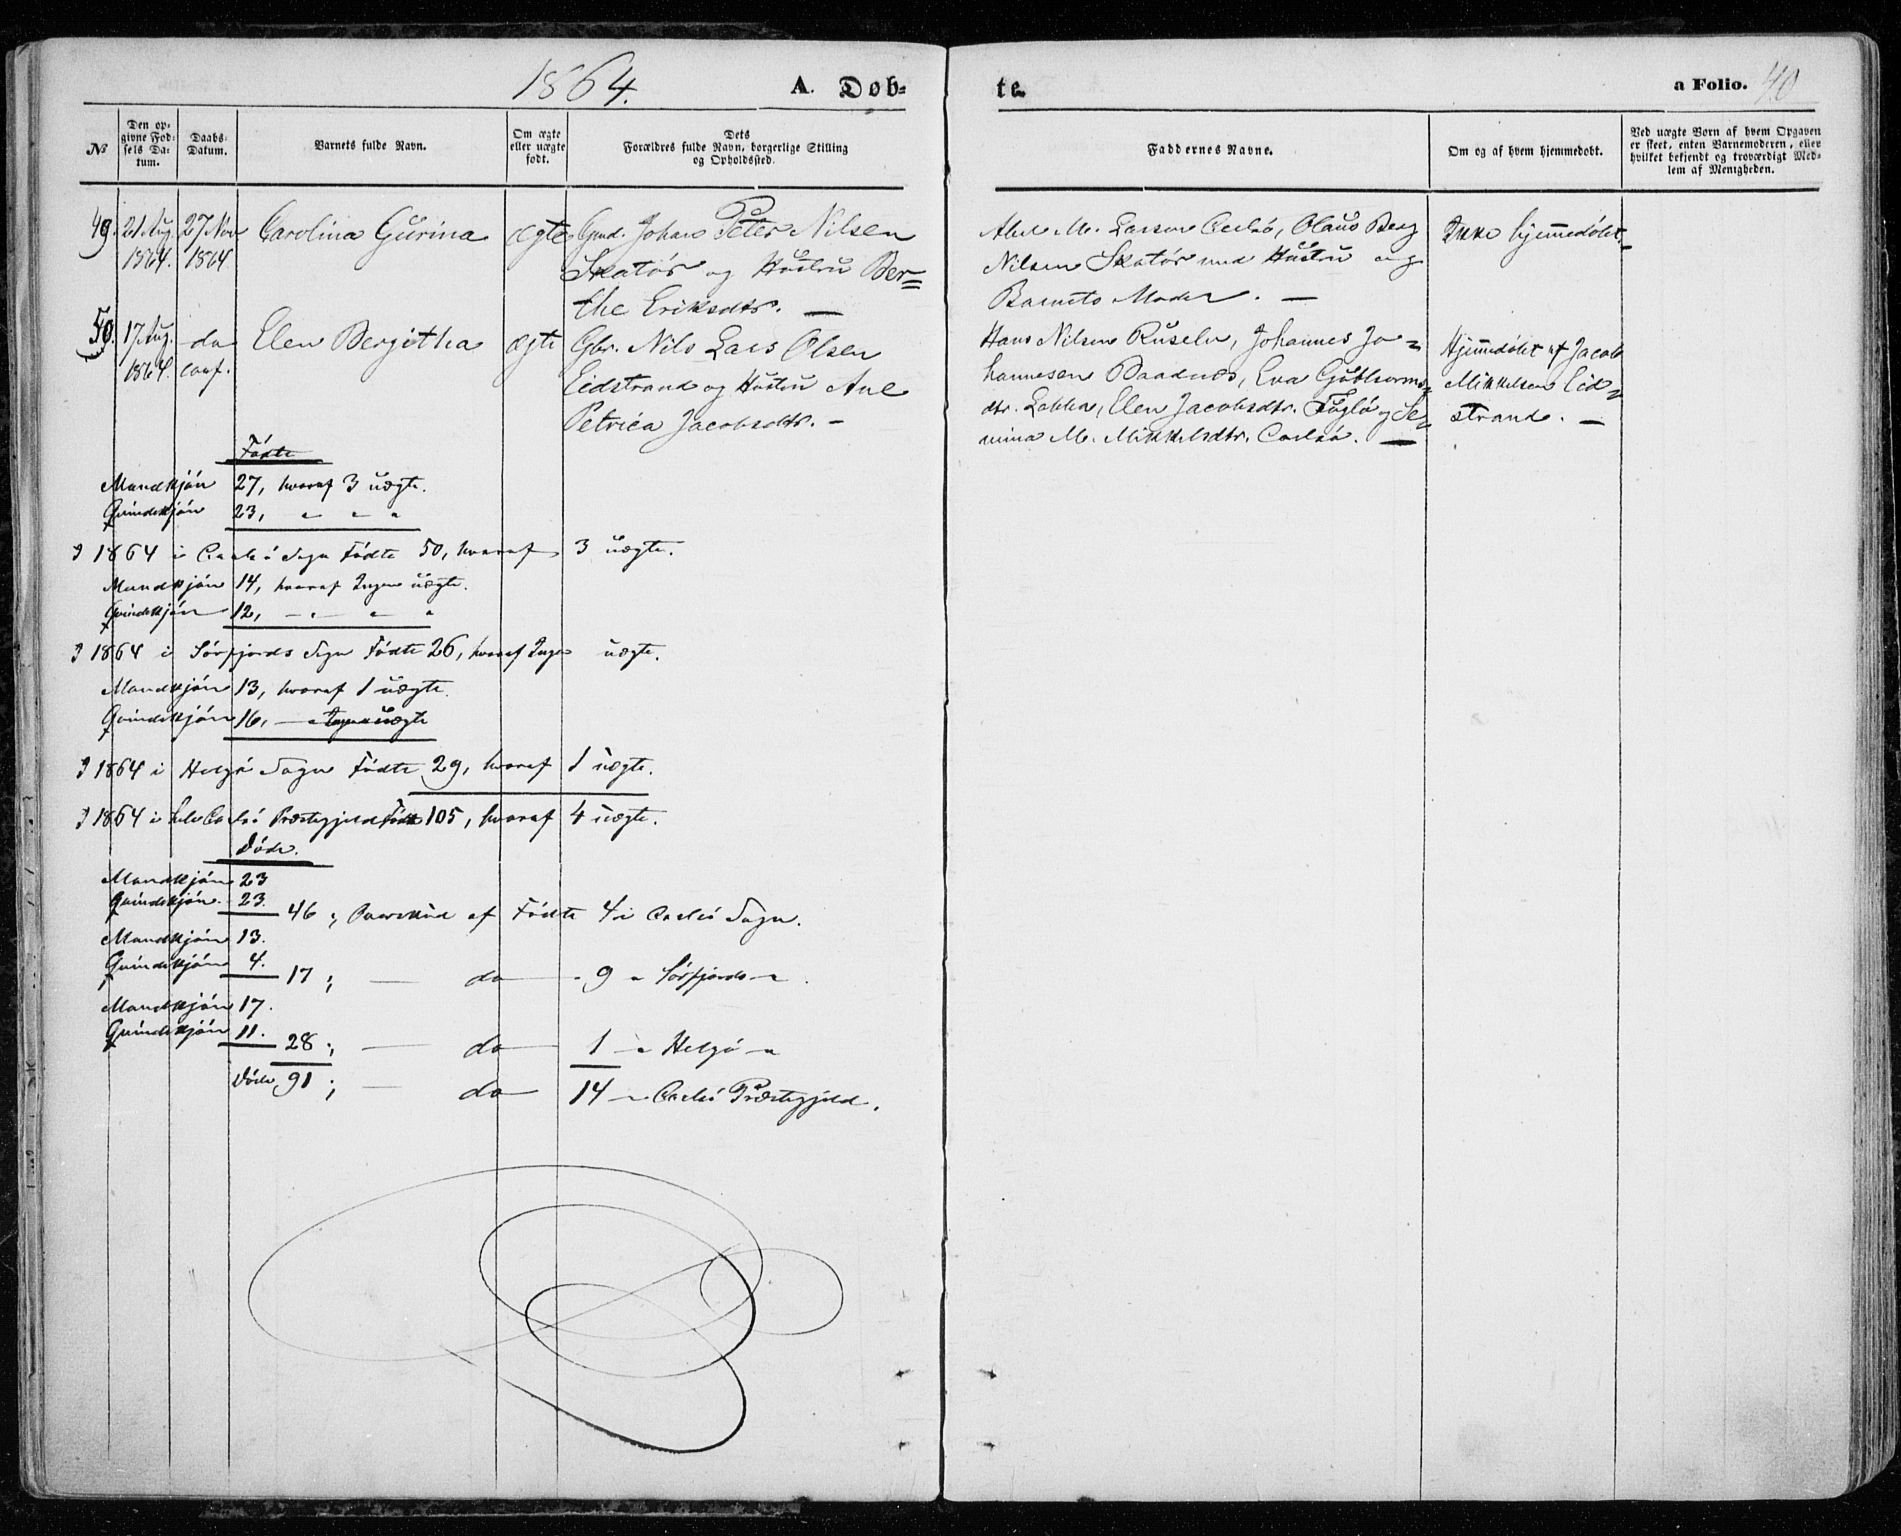 1864.
A. Døb-
te.
a Folio. 40
№
Den op-
givne Fød-
sels Da-
tum.
Daabs-
Datum.
Barnets fulde Navn.
Om ægte
eller uægte
født.
Dets
Forældres fulde Navn, borgerlige Stilling
og Opholdssted.
Faddernes Navne.
Om og af hvem hjemmedøbt.
Ved uægte Børn af hvem Opgaven
er skeet, enten Barnemoderen, eller
hvilket bekjendt og troværdigt Med-
lem af Menigheden.
49. 21 Aug. 27 Nov Carolina Gurina ægte Gmd. Johan Peter Nilsen
1864. 1864 Skatør og Hustru Ber=
the Eriksdtr. —
M. Larsen Carlsø, Olaus Berg
Nilsen Skatør med Hustru og
Barnets Moder. —
Ikke hjemmedøbt. —
50. 17 Aug. do Elen Bergitha ægte Gbr. Nils Lars Olsen
1864. conf. Eidstrand og Hustru Ane
Petrica Jacobsdtr. —
Hans Nilsen Russeln, Johannes Jo=
hannesen Baadnes, Eva Guthorms=
dtr. Lokka, Elen Jacobsdtr. Fuglø og Se=
mina M. Mikkelsdtr. Carlsø. —
Hjemmdøbt af Jacob
Mikkelsen Eid=
strand. —
Fødte
Mandkjøn 27, hvoraf 3 uægte.
Qvindekjøn 23, " " "
I 1864 i Carlsø Sogn Fødte 50, hvoraf 3 uægte.
Mandkjøn 14, hvoraf Ingen uægte.
Qvindekjøn 12, — " — " "
I 1864 i Sørfjords Sogn Fødte 26, hvoraf Ingen uægte.
Mandkjøn 13, hvoraf 1 uægte.
Qvindekjøn 16, — " Ingen uægte
I 1864 i Helgø Sogn Fødte 29, hvoraf 1 uægte.
I 1864 i hele Carlsø Præstegjeld Fødte 105, hvoraf 4 uægte.
Døde.
Mandkjøn 23
Qvindekjøn. 23.
46; Overskud af Fødte 4 i Carlsø Sogn.
Mandkjøn 13.
Qvindekjøn 4.
17; — do — " 9 " Sørfjords "
Mandkjøn 17.
Qvindekjøn 11.
28; — do — 1 — " Helgø — "
Døde 91; — do — 14 — " Carlsø Præstegjeld.